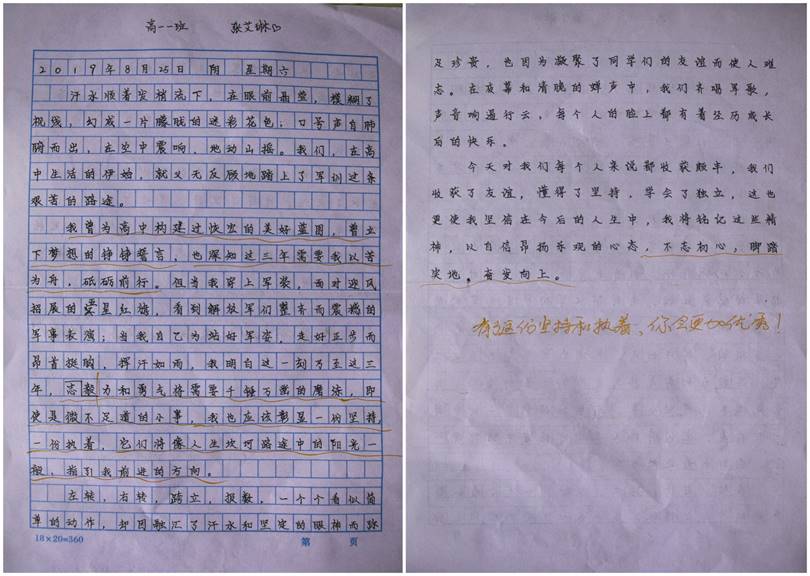 高一一班 张艾琳
2019年8月25日 阴 星期六
汗水顺着发梢流下，在眼前晶莹，模糊了
视线，幻成一片朦胧的迷彩花色；口号声自肺
腑而出，在空中震响，地动山摇。我们，在高
中生活的伊始，就义无反顾地踏上了军训这条
艰苦的路途。
我曾为高中构建过恢宏的美好蓝图，曾立
下梦想的铮铮誓言，也深知这三年需要我以苦
为舟，砥砺前行。但当我穿上军装，面对迎风
招展的五星红旗，看到解放军们整齐而震撼的
军事表演；当我自己为站好军姿，走好正步而
昂首挺胸，挥汗如雨，我明白这一刻乃至这三
年，志毅力和勇气将需要千锤万凿的磨练，即
使是微不足道的小事，我也应该彰显一份坚持，
一份执着，它们将像人生坎坷路途中的阳光一
般，指引我前进的方向。
左转，右转，跨立，报数，一个个看似简
单的动作，却因融汇了汗水和坚定的眼神而弥
18×20=360 第 页
足珍贵，也因为凝聚了同学们的友谊而使人难
忘。在夜幕和清晚的蝉声中，我们齐唱军歌，
声音响遏行云，每个人的脸上都有着经历成长
后的快乐。
今天对我们每个人来说都收获颇丰，我们
收获了友谊，懂得了坚持，学会了独立，这也
更使我坚信在今后的人生中，我将铭记这些精
神，以自信昂扬乐观的心态，不忘初心，脚踏
实地。奋发向上。
有这份坚持和执着，你会更加优秀！